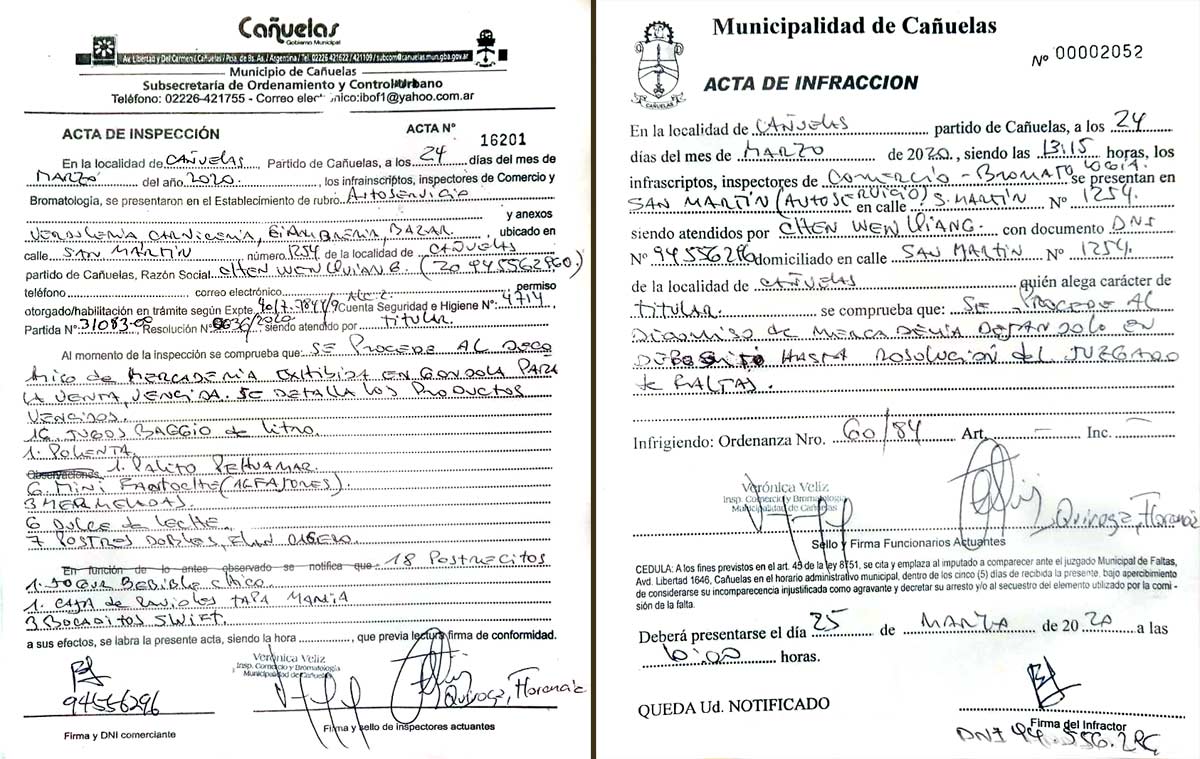 Cañuelas
Gobierno Municipal
Av. Libertad y Del Carmen / Cañuelas / Pcia. de Bs. As. / Argentina / Tel. 02226 421622 / 421109 / subcom@canuelas.mun.gba.gov.ar
Municipio de Cañuelas
Subsecretaría de Ordenamiento y Control Urbano
Teléfono: 02226-421755 - Correo elec nico:ibof1@yahoo.com.ar
ACTA DE INSPECCIÓN
ACTA Nº 16201
En la localidad de CAÑUELAS, Partido de Cañuelas, a los 24 días del mes de
MARZO del año 2020, los infrainscriptos, inspectores de Comercio y
Bromatología, se presentaron en el Establecimiento de rubro AUTOSERVICIO
y anexos
VERDULERIA CARNICERIA, FIAMBRERIA, BAZAR, ubicado en
calle SAN MARTIN número 1254 de la localidad de CAÑUELAS
partido de Cañuelas, Razón Social CHEN WEN
teléfono correo electrónico permiso
otorgado/habilitación en trámite según Expte Cuenta Seguridad e Higiene Nº: 4714
Partida Nº: Resolución Nº siendo atendido por TITULAR.
Al momento de la inspección se comprueba que: SE PROCEDE AL DECO
MISO de MERCADERIA EXHIBIDA EN GONDOLA PARA
LA VENTA, VENCIDA. SE DETALLA LOS PRODUCTOS
VENCIDOS.
16 JUGOS BAGGIO de litro.
1. POLENTA
Observaciones 1. PALITO PEHUAMAR.
6 MINI FANTOCHE (ALFAJORES).
3 MERMELADAS.
6 DULCE de LECHE.
7 POSTRES DOBLES,
En función de lo antes observado se notifica que: 18 POSTRECITOS
1. YOGUR BEBIBLE
1. CAJA de RAVIOLES TAPA MARIA
3 BOCADITOS SWIFT.
a sus efectos, se labra la presente acta, siendo la hora, que previa lectura firma de conformidad.
94556296
Verónica Veliz
Insp. Comercio y Bromatología
Municipalidad de Cañuelas
Quiroga, Florencia
Firma y DNI comerciante
Firma y sello de inspectores actuantes
Municipalidad de Cañuelas
Nº 00002052
ACTA DE INFRACCION
CAÑUELAS
En la localidad de CAÑUELAS partido de Cañuelas, a los 24
días del mes de MARZO de 2020., siendo las 13:15 horas, los
infrascriptos, inspectores de COMERCIO - BROMATOLOGIA. se presentan en
SAN MARTIN (AUTOSERVICIO) en calle S. MARTIN Nº 1254.
siendo atendidos por CHEN WEN con documento DNI
Nº domiciliado en calle SAN MARTIN Nº 1254.
de la localidad de CAÑUELAS quién alega carácter de
TITULAR. se comprueba que: SE PROCEDE AL
DECOMISO de MERCADERIA DEJANDOLO EN
DEPOSITO HASTA RESOLUCION del JUZGADO
de FALTAS.
Infrigiendo: Ordenanza Nro. 60/84 Art. — Inc. —
Verónica Veliz
Insp. Comercio y Bromatología
Municipalidad de Cañuelas
Quiroga, Florencia
Sello y Firma Funcionarios Actuantes
CEDULA: A los fines previstos en el art. 45 de la ley 8751, se cita y emplaza al imputado a comparecer ante el juzgado Municipal de Faltas,
Avd. Libertad 1646, Cañuelas en el horario administrativo municipal, dentro de los cinco (5) días de recibida la presente, bajo apercibimiento
de considerarse su incomparecencia injustificada como agravante y decretar su arresto y/o al secuestro del elemento utilizado por la comi-
sión de la falta.
Deberá presentarse el día 25 de MARZO de 2020 a las
horas.
QUEDA Ud. NOTIFICADO
Firma del Infractor
DNI